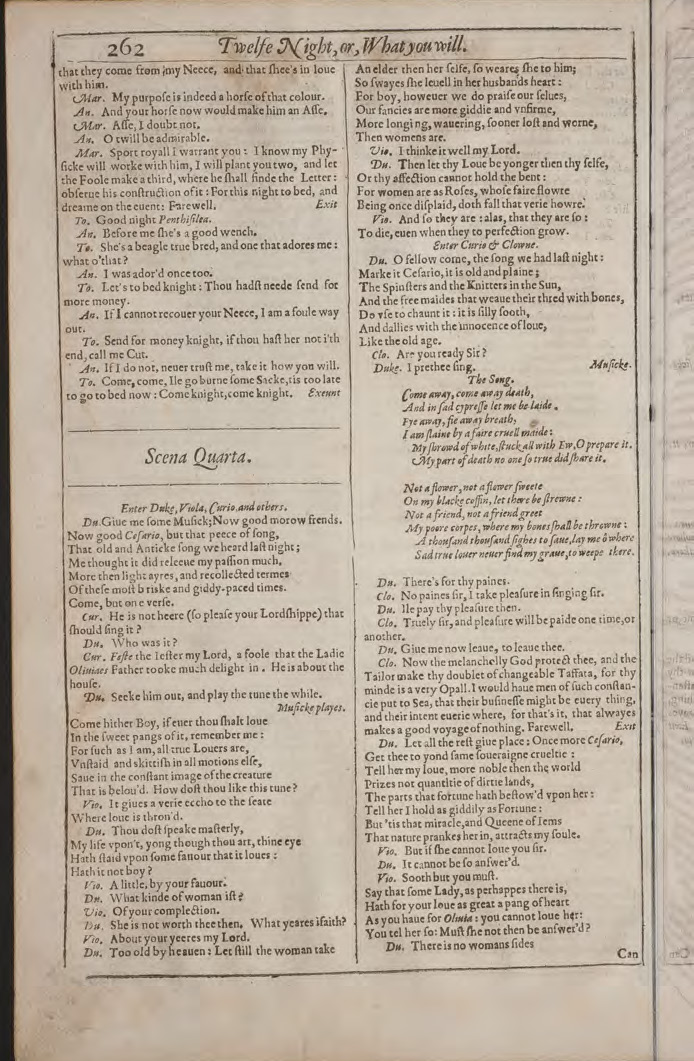 262 Twelfe Night, or, What you will.
that they come from my Neece, and that shee's in loue
with him.
Mar. My purpose is indeed a horse of that colour.
An. And your horse now would make him an Asse.
Mar. Asse, I doubt not.
An. O twill be admirable.
Mar. Sport royall I warrant you: I know my Phy-
sicke will worke with him, I will plant you two, and let
the Foole make a third, where he shall finde the Letter:
obserue his construction of it: For this night to bed, and
dreame on the euent: Farewell. Exit
To. Good night Penthisilea.
An. Before me she's a good wench.
To. She's a beagle true bred, and one that adores me:
what o'that?
An. I was ador'd once too.
To. Let's to bed knight: Thou hadst neede send for
more money.
An. If I cannot recouer your Neece, I am a foule way
out.
To. Send for money knight, if thou hast her not i'th
end, call me Cut.
An. If I do not, neuer trust me, take it how you will.
To. Come, come, Ile go burne some Sacke, tis too late
to go to bed now: Come knight, come knight. Exeunt
Scena Quarta.
Enter Duke, Viola, Curio, and others.
Du. Giue me some Musick; Now good morow frends.
Now good Cesario, but that peece of song,
That old and Anticke song we heard last night;
Me thought it did releeue my passion much,
More then light ayres, and recollected termes
Of these most briske and giddy-paced times.
Come, but one verse.
Cur. He is not heere (so please your Lordshippe) that
should sing it?
Du. Who was it?
Cur. Feste the Iester my Lord, a foole that the Ladie
Oliuiaes Father tooke much delight in. He is about the
house.
Du. Seeke him out, and play the tune the while.
Musicke playes.
Come hither Boy, if euer thou shalt loue
In the sweet pangs of it, remember me:
For such as I am, all true Louers are,
Vnstaid and skittish in all motions else,
Saue in the constant image of the creature
That is belou'd. How dost thou like this tune?
Vio. It giues a verie eccho to the seate
Where loue is thron'd.
Du. Thou dost speake masterly,
My life vpon't, yong though thou art, thine eye
Hath staid vpon some fauour that it loues:
Hath it not boy?
Vio. A little, by your fauour.
Du. What kinde of woman ist?
Vio. Of your complection.
Du. She is not worth thee then. What yeares ifaith?
Vio. About your yeeres my Lord.
Du. Too old by heauen: Let still the woman take
An elder then her selfe, so weares she to him;
So swayes she leuell in her husbands heart:
For boy, howeuer we do praise our selues,
Our fancies are more giddie and vnfirme,
More longing, wauering, sooner lost and worne,
Then womens are.
Vio. I thinke it well my Lord.
Du. Then let thy Loue be yonger then thy selfe,
Or thy affection cannot hold the bent:
For women are as Roses, whose faire flowre
Being once displaid, doth fall that verie howre.
Vio. And so they are: alas, that they are so:
To die, euen when they to perfection grow.
Enter Curio & Clowne.
Du. O fellow come, the song we had last night:
Marke it Cesario, it is old and plaine;
The Spinsters and the Knitters in the Sun,
And the free maides that weaue their thred with bones,
Do vse to chaunt it: it is silly sooth,
And dallies with the innocence of loue,
Like the old age.
Clo. Are you ready Sir?
Duke. I prethee sing. Musicke.
The Song.
Come away, come away death,
And in sad cypresse let me be laide.
Fye away, fie away breath,
I am slaine by a faire cruell maide:
My shrowd of white, stuck all with Ew, O prepare it.
My part of death no one so true did share it.
Not a flower, not a flower sweete
On my blacke coffin, let there be strewne:
Not a friend, not a friend greet
My poore corpes, where my bones shall be throwne:
A thousand thousand sighes to saue, lay me ô where
Sad true louer neuer find my graue, to weepe there.
Du. There's for thy paines.
Clo. No paines sir, I take pleasure in singing sir.
Du. Ile pay thy pleasure then.
Clo. Truely sir, and pleasure will be paide one time, or
another.
Du. Giue me now leaue, to leaue thee.
Clo. Now the melancholly God protect thee, and the
Tailor make thy doublet of changeable Taffata, for thy
minde is a very Opall. I would haue men of such constan-
cie put to Sea, that their businesse might be euery thing,
and their intent euerie where, for that's it, that alwayes
makes a good voyage of nothing. Farewell. Exit
Du. Let all the rest giue place: Once more Cesario,
Get thee to yond same soueraigne crueltie:
Tell her my loue, more noble then the world
Prizes not quantitie of dirtie lands,
The parts that fortune hath bestow'd vpon her:
Tell her I hold as giddily as Fortune:
But 'tis that miracle, and Queene of Iems
That nature prankes her in, attracts my soule.
Vio. But if she cannot loue you sir.
Du. It cannot be so answer'd.
Vio. Sooth but you must.
Say that some Lady, as perhappes there is,
Hath for your loue as great a pang of heart
As you haue for Oliuia: you cannot loue her:
You tel her so: Must she not then be answer'd?
Du. There is no womans sides
Can